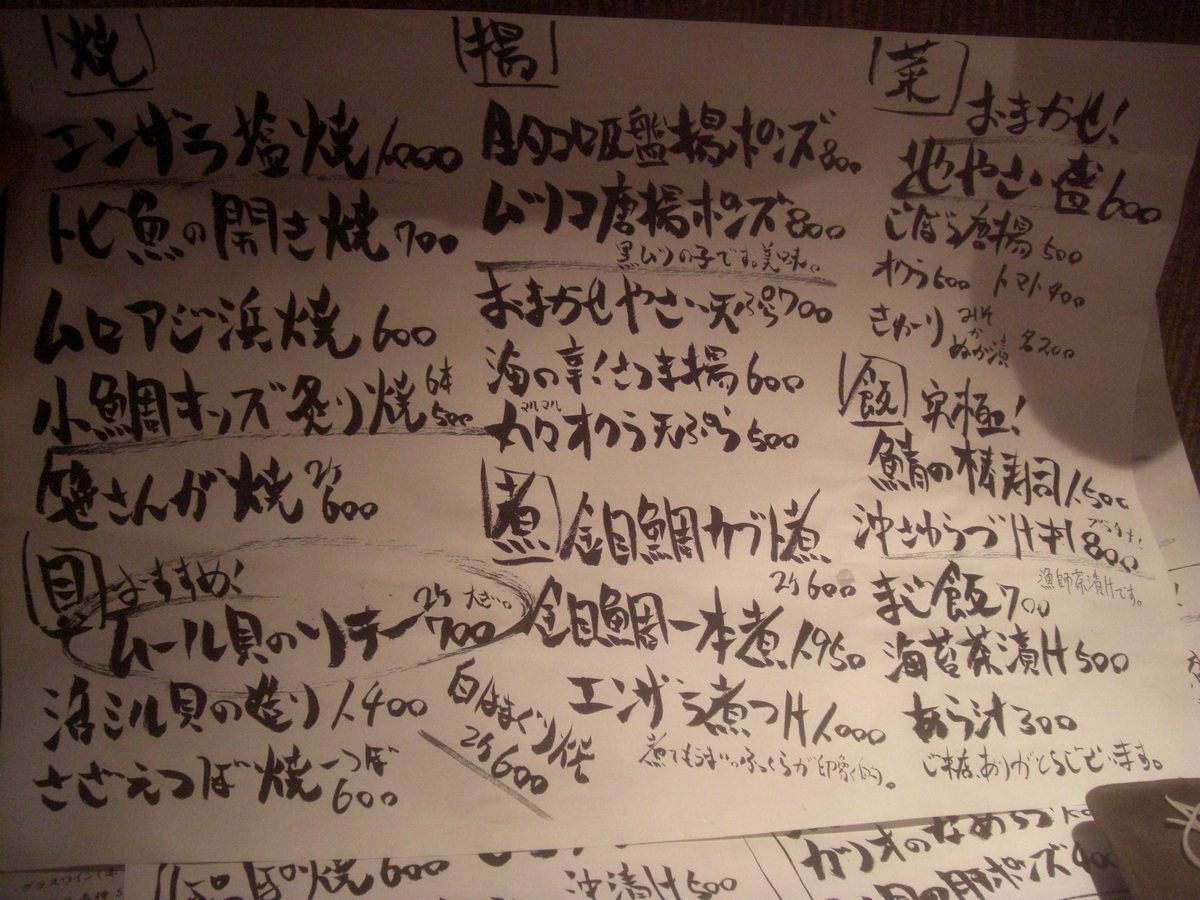 焼
エンザラ塩焼 1,000
トビ魚の開き焼 700
ムロアジ浜焼 600
小鯛キッズ炙り焼 6本 500
さんが焼 2ケ 600
貝 おすすめ!
ムール貝のソテー 2ケ 大ぶり。 700
ミル貝の造り 1,400
さざえつぼ焼 一つぼ 600
白はまぐり焼 2ケ 600
揚
タコ吸盤揚ポンズ 800
ムツコ唐揚ポンズ 800
黒ムツの子です。美味。
おまかせやさい天ぷら 700
海の幸!さつま揚 600
丸々オクラ天ぷら 500
マルマル
煮 金目鯛カブト煮
2ケ 600
金目鯛一本煮 1,950
エンザラ煮つけ 1,000
煮てもうまいっ ふっくらが印象的。
菜 おまかせ!
地やさい盛 600
ごぼう唐揚 500
オクラ 500 トマト 400
きゅーり みそ か ぬか漬 各200
飯 究極!
鯖の棒寿司 1,500
沖きゅうづけ 800
漁師茶漬けです。
まご飯 700
海苔茶漬け 500
あら汁 300
ご来店、ありがとうございます。
焼 600
沖漬け 500
ガツオのなめろう
ポンズ 400